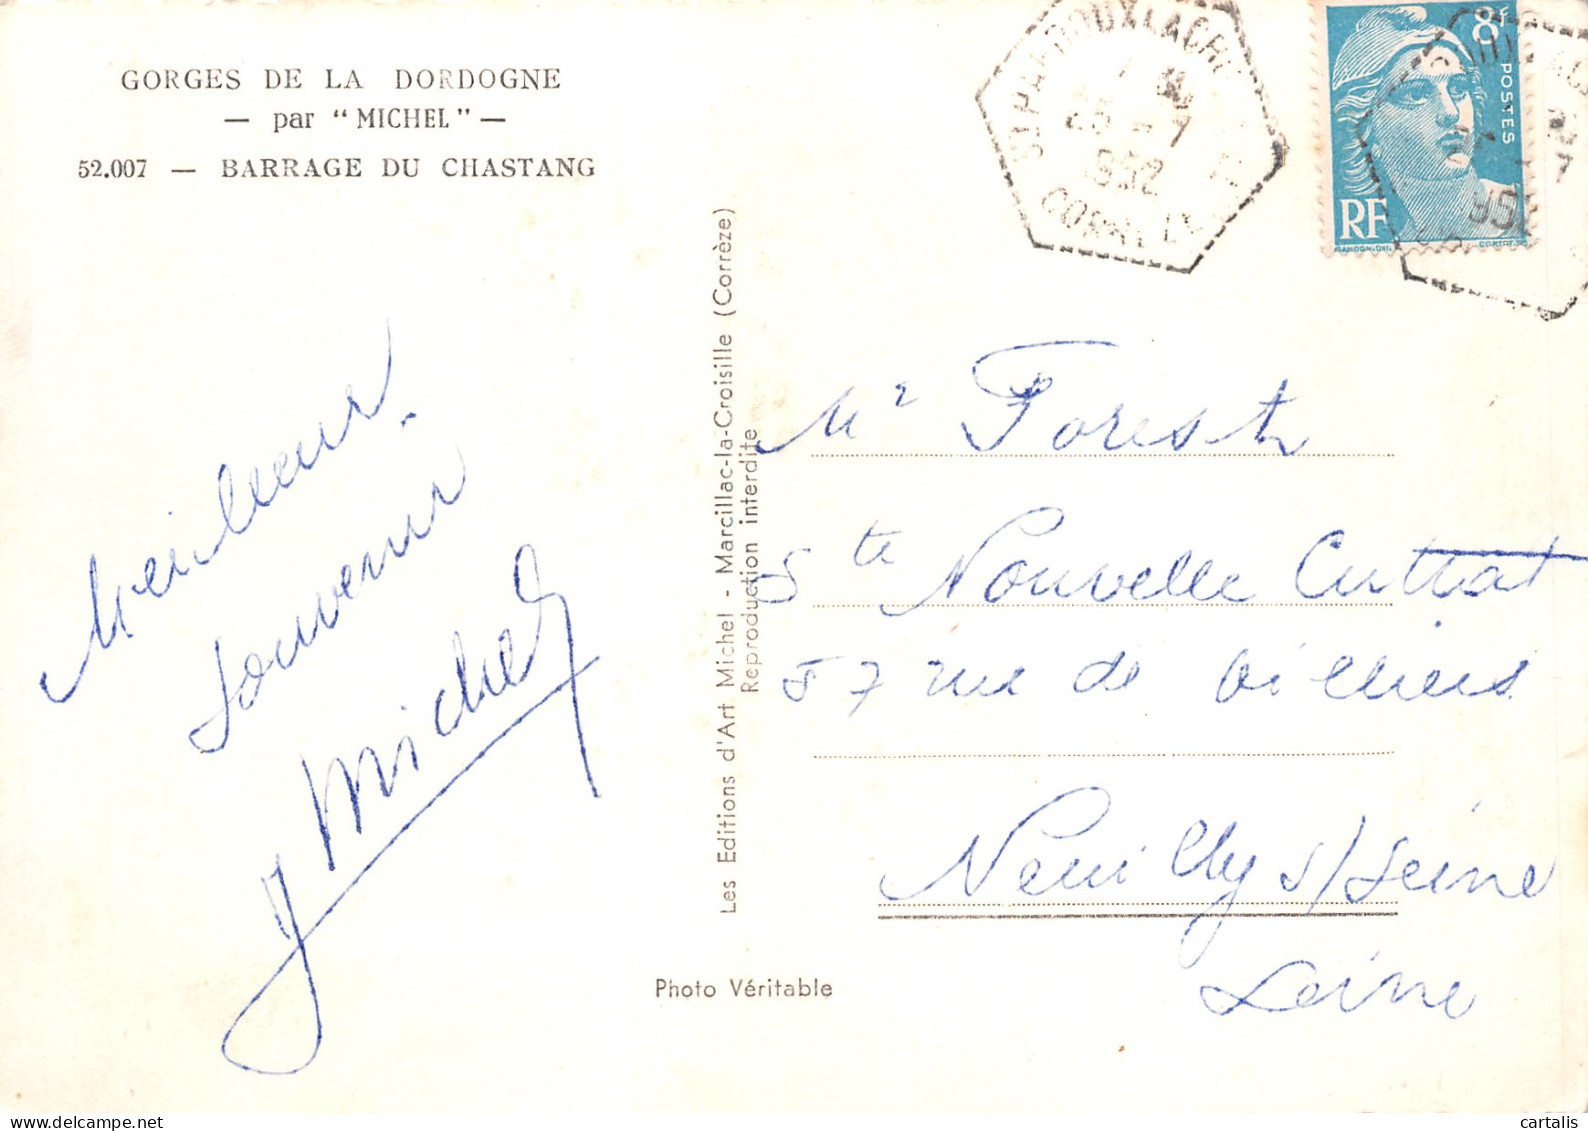 GORGES DE LA DORDOGNE
— par "MICHEL" —
52.007 — BARRAGE DU CHASTANG
8F
POSTES
RF
25 - 7
1952
CORRÈZE
Meilleur
Souvenir
J Michel
Les Editions d'Art Michel - Marcillac-la-Croisille (Corrèze)
Reproduction interdite
Mr Forest
Ste Nouvelle
57 rue de Villiers
Neuilly s/Seine
Seine
Photo Véritable
cartalis
delcampe.net